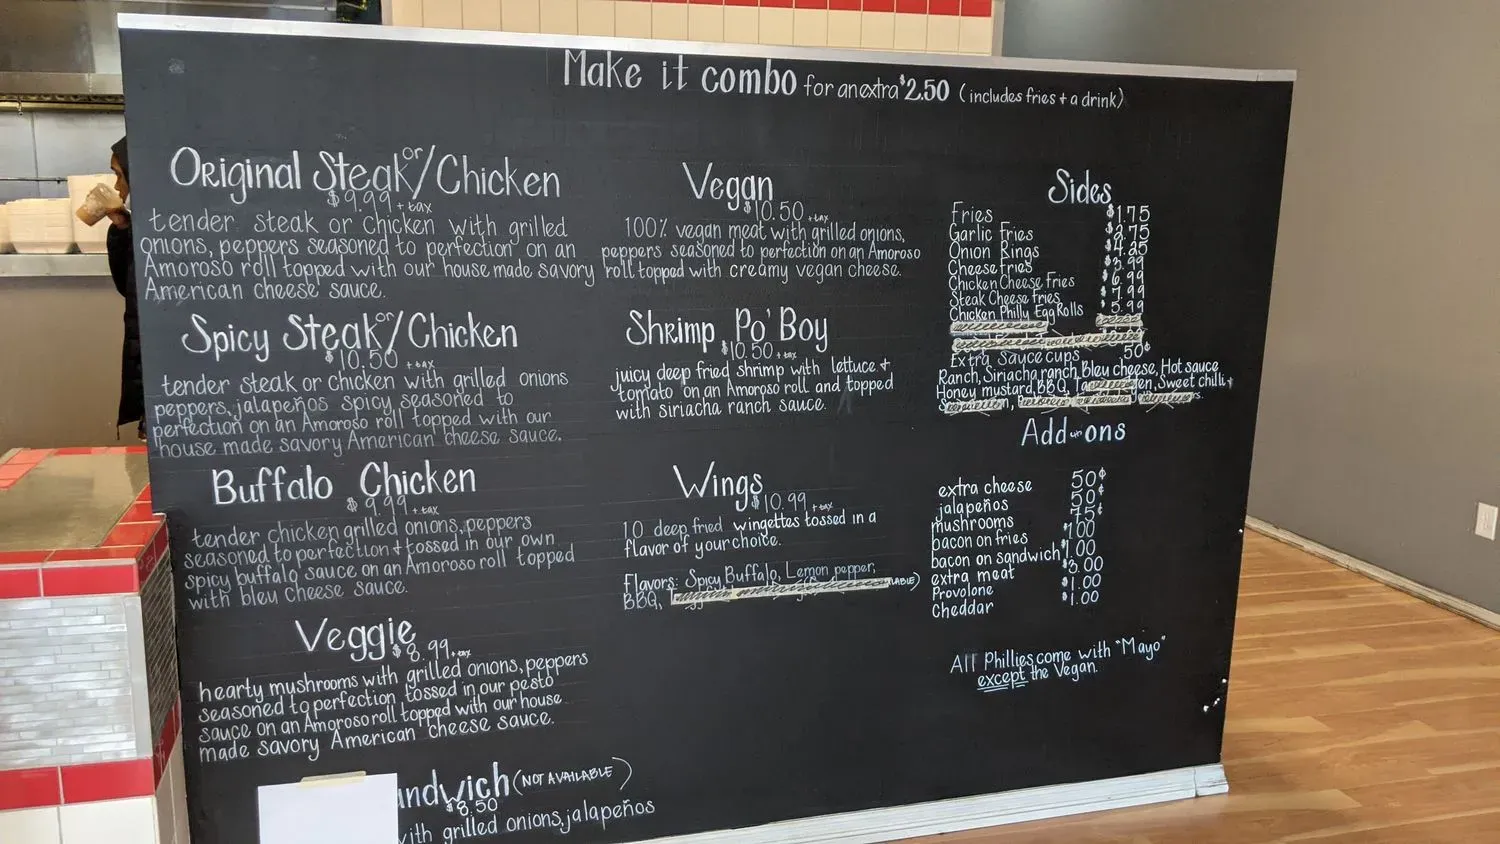 Make it combo for an extra $2.50 (includes fries + a drink)
Original Steak or/Chicken
$9.99 + tax
tender steak or chicken with grilled
onions, peppers seasoned to perfection on an
Amoroso roll topped with our house made savory
American cheese sauce.
Spicy Steak or/Chicken
$10.50 + tax
tender steak or chicken with grilled onions
peppers, jalapeños spicy seasoned to
perfection on an Amoroso roll topped with our
house made savory American cheese sauce.
Buffalo Chicken
$9.99 + tax
tender chicken grilled onions, peppers
seasoned to perfection + tossed in our own
spicy buffalo sauce on an Amoroso roll topped
with bleu cheese sauce.
Veggie
$8.99 + tax
hearty mushrooms with grilled onions, peppers
seasoned to perfection tossed in our pesto
sauce on an Amoroso roll topped with our house
made savory American cheese sauce.
andwich (NOT AVAILABLE)
$8.50
with grilled onions, jalapeños
Vegan
$10.50 + tax
100% vegan meat with grilled onions,
peppers seasoned to perfection on an Amoroso
roll topped with creamy vegan cheese.
Shrimp Po' Boy
$10.50 + tax
juicy deep fried shrimp with lettuce +
tomato on an Amoroso roll and topped
with siriacha ranch sauce.
Wings
$10.99 + tax
10 deep fried wingettes tossed in a
flavor of your choice.
Flavors: Spicy Buffalo, Lemon pepper,
BBQ,
Sides
Fries $1.75
Garlic Fries $2.75
Onion Rings $4.25
Cheese fries $3.99
Chicken Cheese fries $6.99
Steak Cheese fries $7.99
Chicken Philly Egg Rolls $5.99
Extra sauce cups 50¢
Ranch, Siriacha ranch, Bleu cheese, Hot sauce
Honey mustard, BBQ, Sweet chili +
Add-ons
extra cheese 50¢
jalapeños 50¢
mushrooms 75¢
bacon on fries $1.00
bacon on sandwich $1.00
extra meat $3.00
Provolone $1.00
Cheddar $1.00
All Phillies come with "Mayo"
except the Vegan.